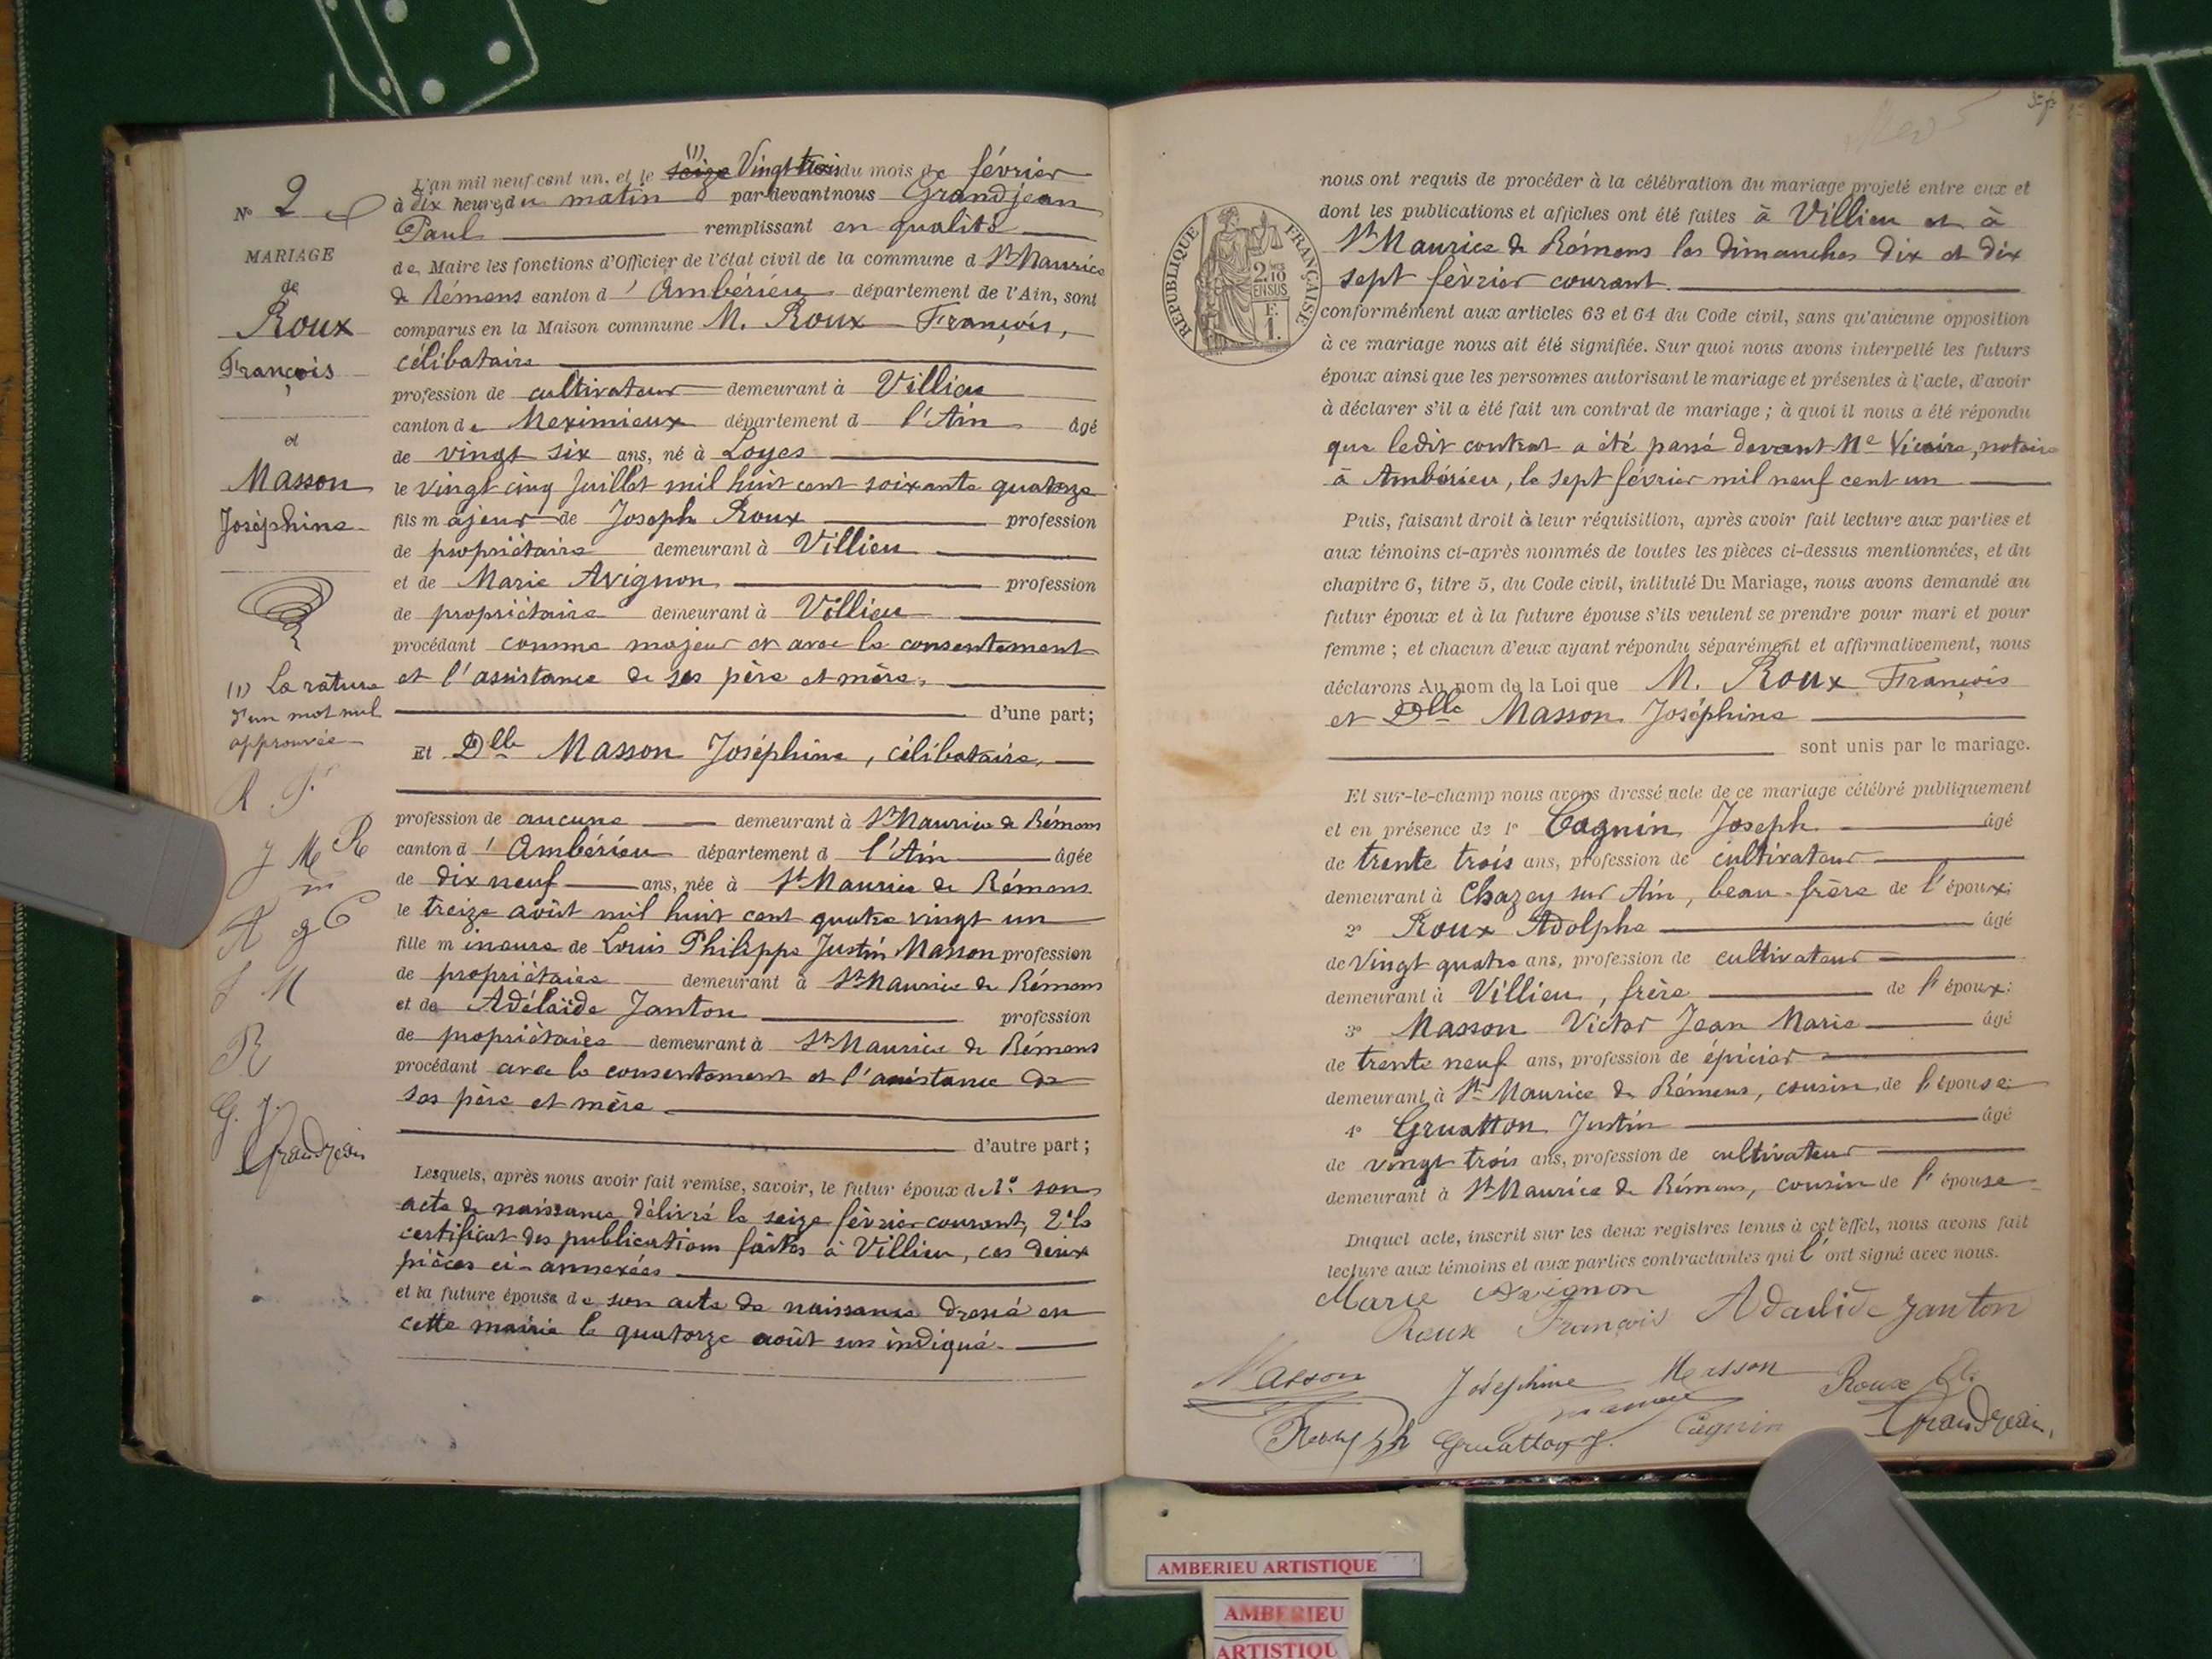 N° 2
MARIAGE
de
Roux
François
et
Masson
Joséphine
(1) La rature
d'un mot nul
approuvée
R F
J M R
m
A g C
J M
R
G. J.
Grandjean
(1)
L'an mil neuf cent un, et le seize Vingt trois du mois de février
à dix heures du matin par-devant nous Grandjean
Paul remplissant en qualité
de Maire les fonctions d'Officier de l'état civil de la commune d St Maurice
de Rémens canton d' Ambérieu département de l'Ain, sont
comparus en la Maison commune M. Roux François,
célibataire
profession de cultivateur demeurant à Villieu
canton de Meximieux département d l'Ain âgé
de vingt six ans, né à Loyes
le vingt cinq Juillet mil huit cent soixante quatorze
fils majeur de Joseph Roux profession
de propriétaire demeurant à Villieu
et de Marie Avignon profession
de propriétaire demeurant à Villieu
procédant comme majeur et avec le consentement
et l'assistance de ses père et mère.
d'une part;
Et Dlle Masson Joséphine, célibataire,
profession de aucune demeurant à St Maurice de Rémens
canton d' Ambérieu département d l'Ain âgée
de dix neuf ans, née à St Maurice de Rémens
le treize août mil huit cent quatre vingt un
fille mineure de Louis Philippe Justin Masson profession
de propriétaire demeurant à St Maurice de Rémens
et de Adélaïde Janton profession
de propriétaire demeurant à St Maurice de Rémens
procédant avec le consentement et l'assistance de
ses père et mère
d'autre part;
Lesquels, après nous avoir fait remise, savoir, le futur époux de 1° son
acte de naissance délivré le seize février courant, 2° le
certificat des publications faites à Villieu, ces deux
pièces ci-annexées
et la future épouse de son acte de naissance dressé en
cette mairie le quatorze août sus indiqué.
RÉPUBLIQUE FRANÇAISE
2/10
EN SUS
F.
1.
nous ont requis de procéder à la célébration du mariage projeté entre eux et
dont les publications et affiches ont été faites à Villieu et à
St Maurice de Rémens les dimanches dix et dix
sept février courant.
conformément aux articles 63 et 64 du Code civil, sans qu'aucune opposition
à ce mariage nous ait été signifiée. Sur quoi nous avons interpellé les futurs
époux ainsi que les personnes autorisant le mariage et présentes à l'acte, d'avoir
à déclarer s'il a été fait un contrat de mariage; à quoi il nous a été répondu
que ledit contrat a été passé devant Me Vicaire, notaire
à Ambérieu, le sept février mil neuf cent un
Puis, faisant droit à leur réquisition, après avoir fait lecture aux parties et
aux témoins ci-après nommés de toutes les pièces ci-dessus mentionnées, et du
chapitre 6, titre 5, du Code civil, intitulé Du Mariage, nous avons demandé au
futur époux et à la future épouse s'ils veulent se prendre pour mari et pour
femme; et chacun d'eux ayant répondu séparément et affirmativement, nous
déclarons Au nom de la Loi que M. Roux François
et Dlle Masson Joséphine
sont unis par le mariage.
Et sur-le-champ nous avons dressé acte de ce mariage célébré publiquement
et en présence de 1° Cagnin Joseph âgé
de trente trois ans, profession de cultivateur
demeurant à Chazey sur Ain, beau-frère de l'époux;
2° Roux Adolphe âgé
de Vingt quatre ans, profession de cultivateur
demeurant à Villieu, frère de l'époux;
3° Masson Victor Jean Marie âgé
de trente neuf ans, profession de épicier
demeurant à St Maurice de Rémens, cousin de l'épouse;
4° Gruatton Justin âgé
de vingt trois ans, profession de cultivateur
demeurant à St Maurice de Rémens, cousin de l'épouse
Duquel acte, inscrit sur les deux registres tenus à cet effet, nous avons fait
lecture aux témoins et aux parties contractantes qui l'ont signé avec nous.
Marie Avignon
Roux François Adaelide Janton
Masson Joséphine Masson Roux A.
masson
Gruatton J. Cagnin Grandjean
AMBERIEU ARTISTIQUE
AMBERIEU
ARTISTIQU